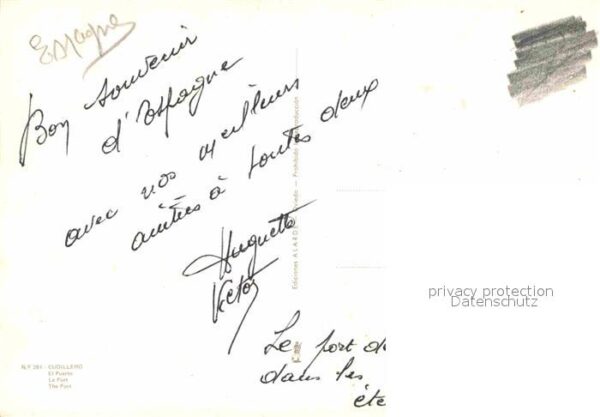 Espagne
Bon souvenir
d'Espagne
avec nos meilleurs
amitiés à toutes deux
Huguette
Victor
Le port de
dans les
été
Ediciones ALARDE Oviedo - Prohibida la reproducción
N.º 284 - CUDILLERO
El Puerto
Le Port
The Port
privacy protection
Datenschutz